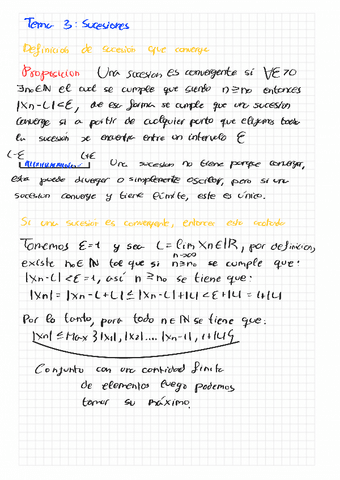 Tema 3: Sucesiones
Definición de sucesión que converge
Proposicion Una sucesion es convergente si ∀ε>0
∃n₀∈ℕ el cual se cumple que siento n≥n₀ entonces
|Xn-L|<ε, de esa forma se cumple que una sucesion
converge si a partir de cualquier punto que elijamos toda
la sucesión se encuentra entre un intervalo ε
L-ε L+ε Una sucesion no tiene porque converger,
esta puede diverger o simplemente oscilar, pero si una
sucesion converge y tiene límite, este es único.
Si una sucesion es convergente, entonces esta acotada
Tonemos ε=1 y sea L=lim Xn∈ℝ, por definicion,
n→∞
existe n₀∈ℕ tal que si n≥n₀ se cumple que:
|Xn-L|<ε=1, así n≥n₀ se tiene que:
|Xn|=|Xn-L+L|≤|Xn-L|+|L|<ε+|L|=1+|L|
Por lo tanto, para todo n∈ℕ se tiene que:
|Xn|≤Max{|X1|,|X2|....|Xn-1|,1+|L|}
Conjunto con una cantidad finita
de elementos luego podemos
tomar su máximo.